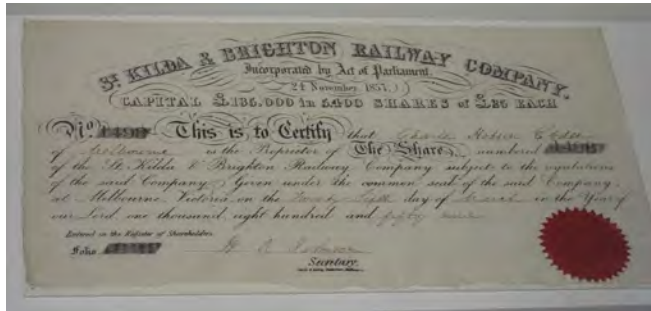 ST. KILDA & BRIGHTON RAILWAY COMPANY.
Incorporated by Act of Parliament.
24 November 1857.
CAPITAL £135,000 in 5400 SHARES of £25 EACH
No. This is to Certify that Charles
of Melbourne is the Proprietor of The Share numbered
of the St. Kilda & Brighton Railway Company subject to the regulations
of the said Company. Given under the common seal of the said Company,
at Melbourne, Victoria on the Twenty fifth day of March in the Year of
our Lord one thousand eight hundred and fifty nine
Entered on the Register of Shareholders.
Folio
Secretary.